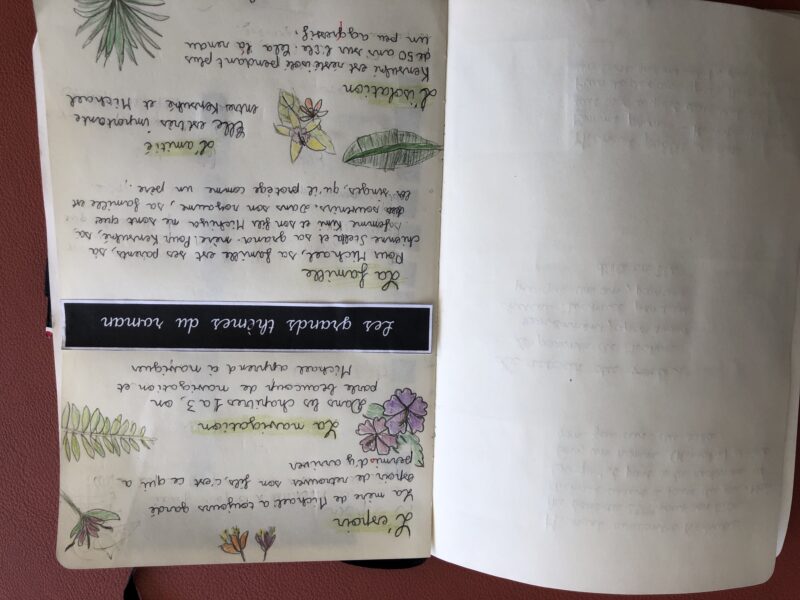 L'espoir
La mère de Michael a toujours gardé
espoir de retrouver son fils, c'est ce qui a
permis d'y arriver
La navigation
Dans les chapitres 1 à 3, on
parle beaucoup de navigation et
Michael apprend à naviguer
Les grands thèmes du roman
La famille
Pour Michael, sa famille est ses parents, sa
chienne Stella et sa grand-mère. Pour Kensuké, sa
femme Kimi et son fils Michiya ne sont que
des souvenirs. Dans son royaume, sa famille est
les singes, qu'il protège comme un père.
L'amitié
Elle est très importante
entre Kensuké et Michael
L'isolation
Kensuké est resté isolé pendant plus
de 50 ans sur l'île. Cela là rendu
un peu aggressif.